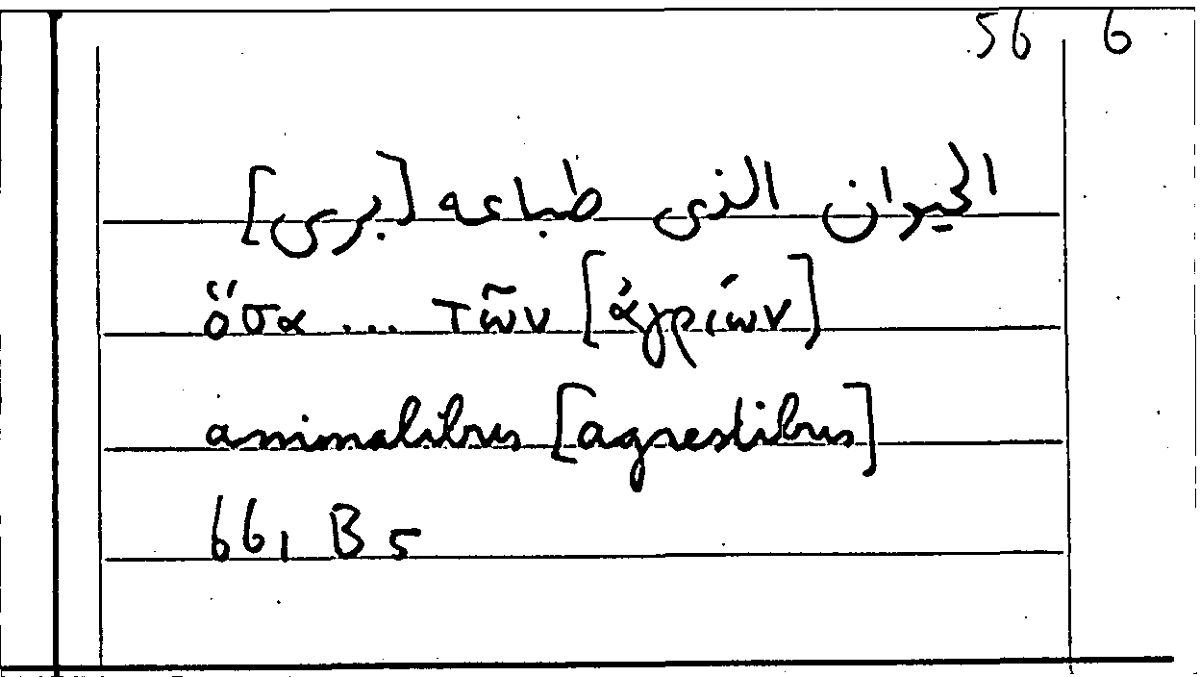 56, 6
الحيوان الذى طباعه [برى]
ὅσα ... τῶν [ἀγρίων]
animalibus [agrestibus]
661 B 5